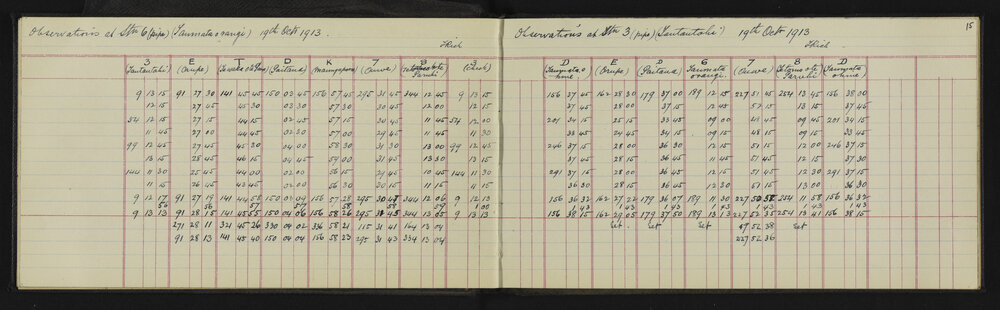 Observations at Stn 6 (pipe) (Taumata orangi) 19th Octr 1913.
Thick
3 E T D K 7 8 3
(Orupe) (Paitana) (Check)
9 13 15 91 27 30 141 45 45 150 03 45 156 57 45 295 31 45 344 12 45 9 13 15
12 15 27 45 45 30 03 30 57 30 30 45 12 00 12 15
54 12 15 27 15 44 15 02 45 57 15 30 45 11 45 54 12 00
11 45 27 00 44 45 02 30 57 00 29 45 11 45 11 30
99 12 45 27 45 45 30 04 30 58 30 31 30 13 00 99 12 45
13 15 28 45 46 15 04 45 59 00 31 45 13 30 13 15
144 11 30 25 45 44 00 02 00 56 15 29 45 10 45 144 11 30
11 15 26 45 43 45 02 00 56 30 30 15 11 15 11 15
9 12 17 91 27 19 141 44 58 150 03 09 156 57 28 295 30 47 344 12 06 9 12 13
9 13 13 91 28 15 141 45 55 150 04 06 156 58 26 295 31 45 344 13 05 9 13 13
271 28 11 321 45 26 330 04 02 336 58 21 115 31 41 164 13 04
91 28 13 141 45 40 150 04 04 156 58 23 295 31 43 334 13 04
15
Observations at Stn 3 (pipe) (Tautautahi) 19th Octr 1913
Thick
D E D 6 7 8 D
(Orupe) (Paitana)
156 37 45 162 28 30 179 37 00 189 12 15 227 51 45 254 13 45 156 38 00
37 45 28 00 37 15 12 45 51 15 13 15 37 45
201 34 15 25 15 33 45 09 00 48 45 09 45 201 34 15
33 45 24 45 34 15 09 00 48 15 09 15 33 45
246 37 15 28 00 36 30 12 15 51 45 12 00 246 37 15
37 30 28 15 36 45 11 45 51 45 12 15 37 30
291 37 15 28 00 36 30 12 15 51 45 12 30 291 37 15
36 30 28 15 36 45 12 30 51 15 13 00 36 30
156 36 32 162 27 22 179 36 07 189 11 30 227 50 52 254 11 58 156 36 32
1 43 1 43 1 43 1 43 1 43 1 43 1 43
156 38 15 162 29 05 179 37 50 189 13 13 227 52 35 254 13 41 156 38 15
Set Set Set 47 52 38 Set
227 52 36